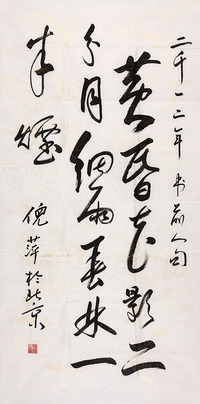 二千一二年 书前人句
黄昏花影二
分月细雨春林一
半煙
倪萍於北京